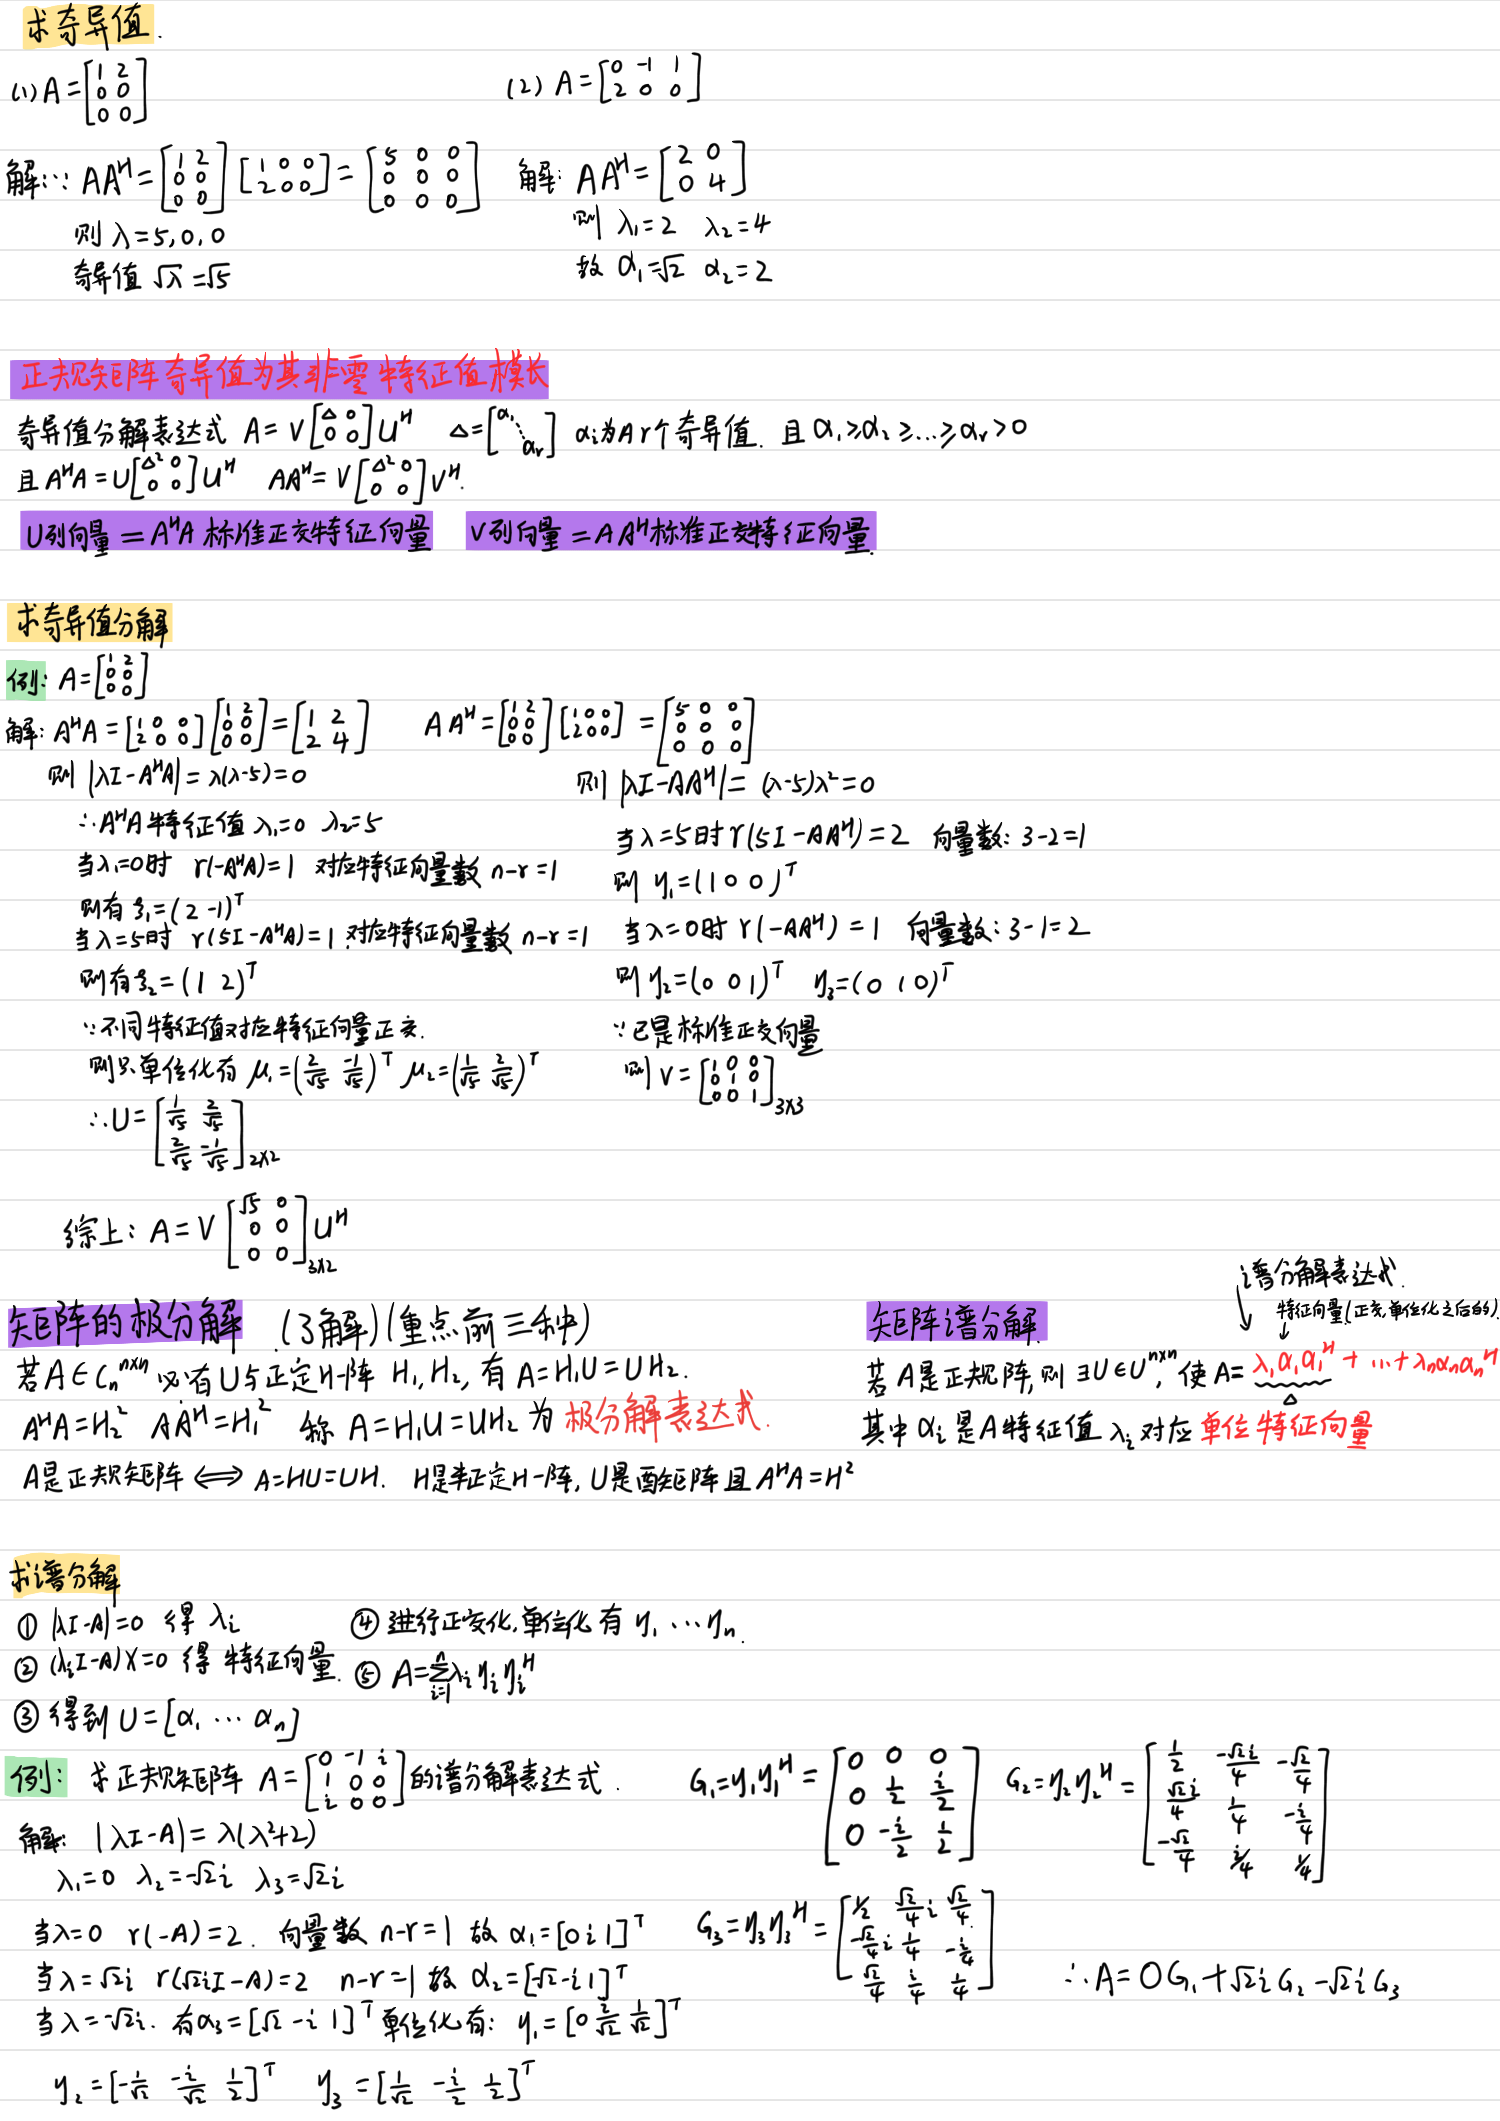 求奇异值.
(1) A = [1 2; 0 0; 0 0]
(2) A = [0 -1 1; 2 0 0]
解:∵ AA^H = [1 2; 0 0; 0 0] [1 0 0; 2 0 0] = [5 0 0; 0 0 0; 0 0 0]
则 λ=5,0,0
奇异值 √λ = √5
解: AA^H = [2 0; 0 4]
则 λ₁=2 λ₂=4
故 α₁=√2 α₂=2
正规矩阵奇异值为其非零特征值模长
奇异值分解表达式 A = V[Δ 0; 0 0]U^H Δ=[α₁ ⋱ αr] αi为A r个奇异值. 且 α₁≥α₂≥…≥αr>0
且 A^HA = U[Δ² 0; 0 0]U^H AA^H = V[Δ² 0; 0 0]V^H.
U列向量 = A^HA 标准正交特征向量 V列向量 = AA^H标准正交特征向量.
求奇异值分解
例: A = [1 2; 0 0; 0 0]
解: A^HA = [1 0 0; 2 0 0] [1 2; 0 0; 0 0] = [1 2; 2 4]
则 |λI-A^HA| = λ(λ-5) = 0
∴ A^HA特征值 λ₁=0 λ₂=5
当λ₁=0时 r(-A^HA)=1 对应特征向量数 n-r=1
则有 ξ₁=(2 -1)^T
当λ=5时 r(5I-A^HA)=1. 对应特征向量数 n-r=1
则有 ξ₂=(1 2)^T
∵不同特征值对应特征向量正交.
则只单位化有 μ₁=(2/√5 -1/√5)^T μ₂=(1/√5 2/√5)^T
∴ U = [1/√5 2/√5; 2/√5 -1/√5]2×2
AA^H = [1 2; 0 0; 0 0] [1 0 0; 2 0 0] = [5 0 0; 0 0 0; 0 0 0]
则 |λI-AA^H| = (λ-5)λ²=0
当λ=5时 r(5I-AA^H)=2 向量数: 3-2=1
则 y₁=(1 0 0)^T
当λ=0时 r(-AA^H)=1 向量数: 3-1=2
则 y₂=(0 0 1)^T y₃=(0 1 0)^T
∵已是标准正交向量
则 V = [1 0 0; 0 1 0; 0 0 1]3×3
综上: A = V [√5 0; 0 0; 0 0]3×2 U^H
矩阵的极分解 (了解)(重点前三种)
若 A∈Cn^n×n 必有U与正定H-阵 H₁,H₂, 有 A=H₁U=UH₂.
A^HA=H₂² AA^H=H₁² 称 A=H₁U=UH₂ 为 极分解表达式.
A是正规矩阵 ⟺ A=HU=UH. H是半正定H-阵, U是酉矩阵且 A^HA=H²
谱分解表达式.
特征向量(正交,单位化之后的).
矩阵谱分解
若 A是正规阵, 则 ∃U∈U^n×n, 使 A=λ₁α₁α₁^H+…+λnαnαn^H
其中 αi 是A特征值 λi 对应 单位特征向量
求谱分解
① |λI-A|=0 得 λi
② (λiI-A)X=0 得 特征向量.
③ 得到 U=[α₁ … αn]
④ 进行正交化,单位化 有 y₁ … yn.
⑤ A=∑ i=1 n λi yi yi^H
例: 求正规矩阵 A = [0 -1 i; 1 0 0; i 0 0]的谱分解表达式.
解: |λI-A| = λ(λ²+2)
λ₁=0 λ₂=-√2i λ₃=√2i
当λ=0 r(-A)=2. 向量数 n-r=1 故 α₁=[0 i 1]^T
当λ=√2i r(√2iI-A)=2 n-r=1 故 α₂=[-√2 -i 1]^T
当λ=-√2i. 有α₃=[√2 -i 1]^T 单位化有: y₁=[0 i/√2 1/√2]^T
y₂=[-1/√2 -i/√2 1/2]^T y₃=[1/√2 -i/2 1/2]^T
G₁=y₁y₁^H = [0 0 0; 0 1/2 i/2; 0 -i/2 1/2]
G₂=y₂y₂^H = [1/2 -√2i/4 -√2/4; √2i/4 1/4 -i/4; -√2/4 i/4 1/4]
G₃=y₃y₃^H = [1/2 √2/4i √2/4; -√2/4i 1/4 -i/4; √2/4 i/4 1/4]
∴ A = 0G₁+√2iG₂-√2iG₃